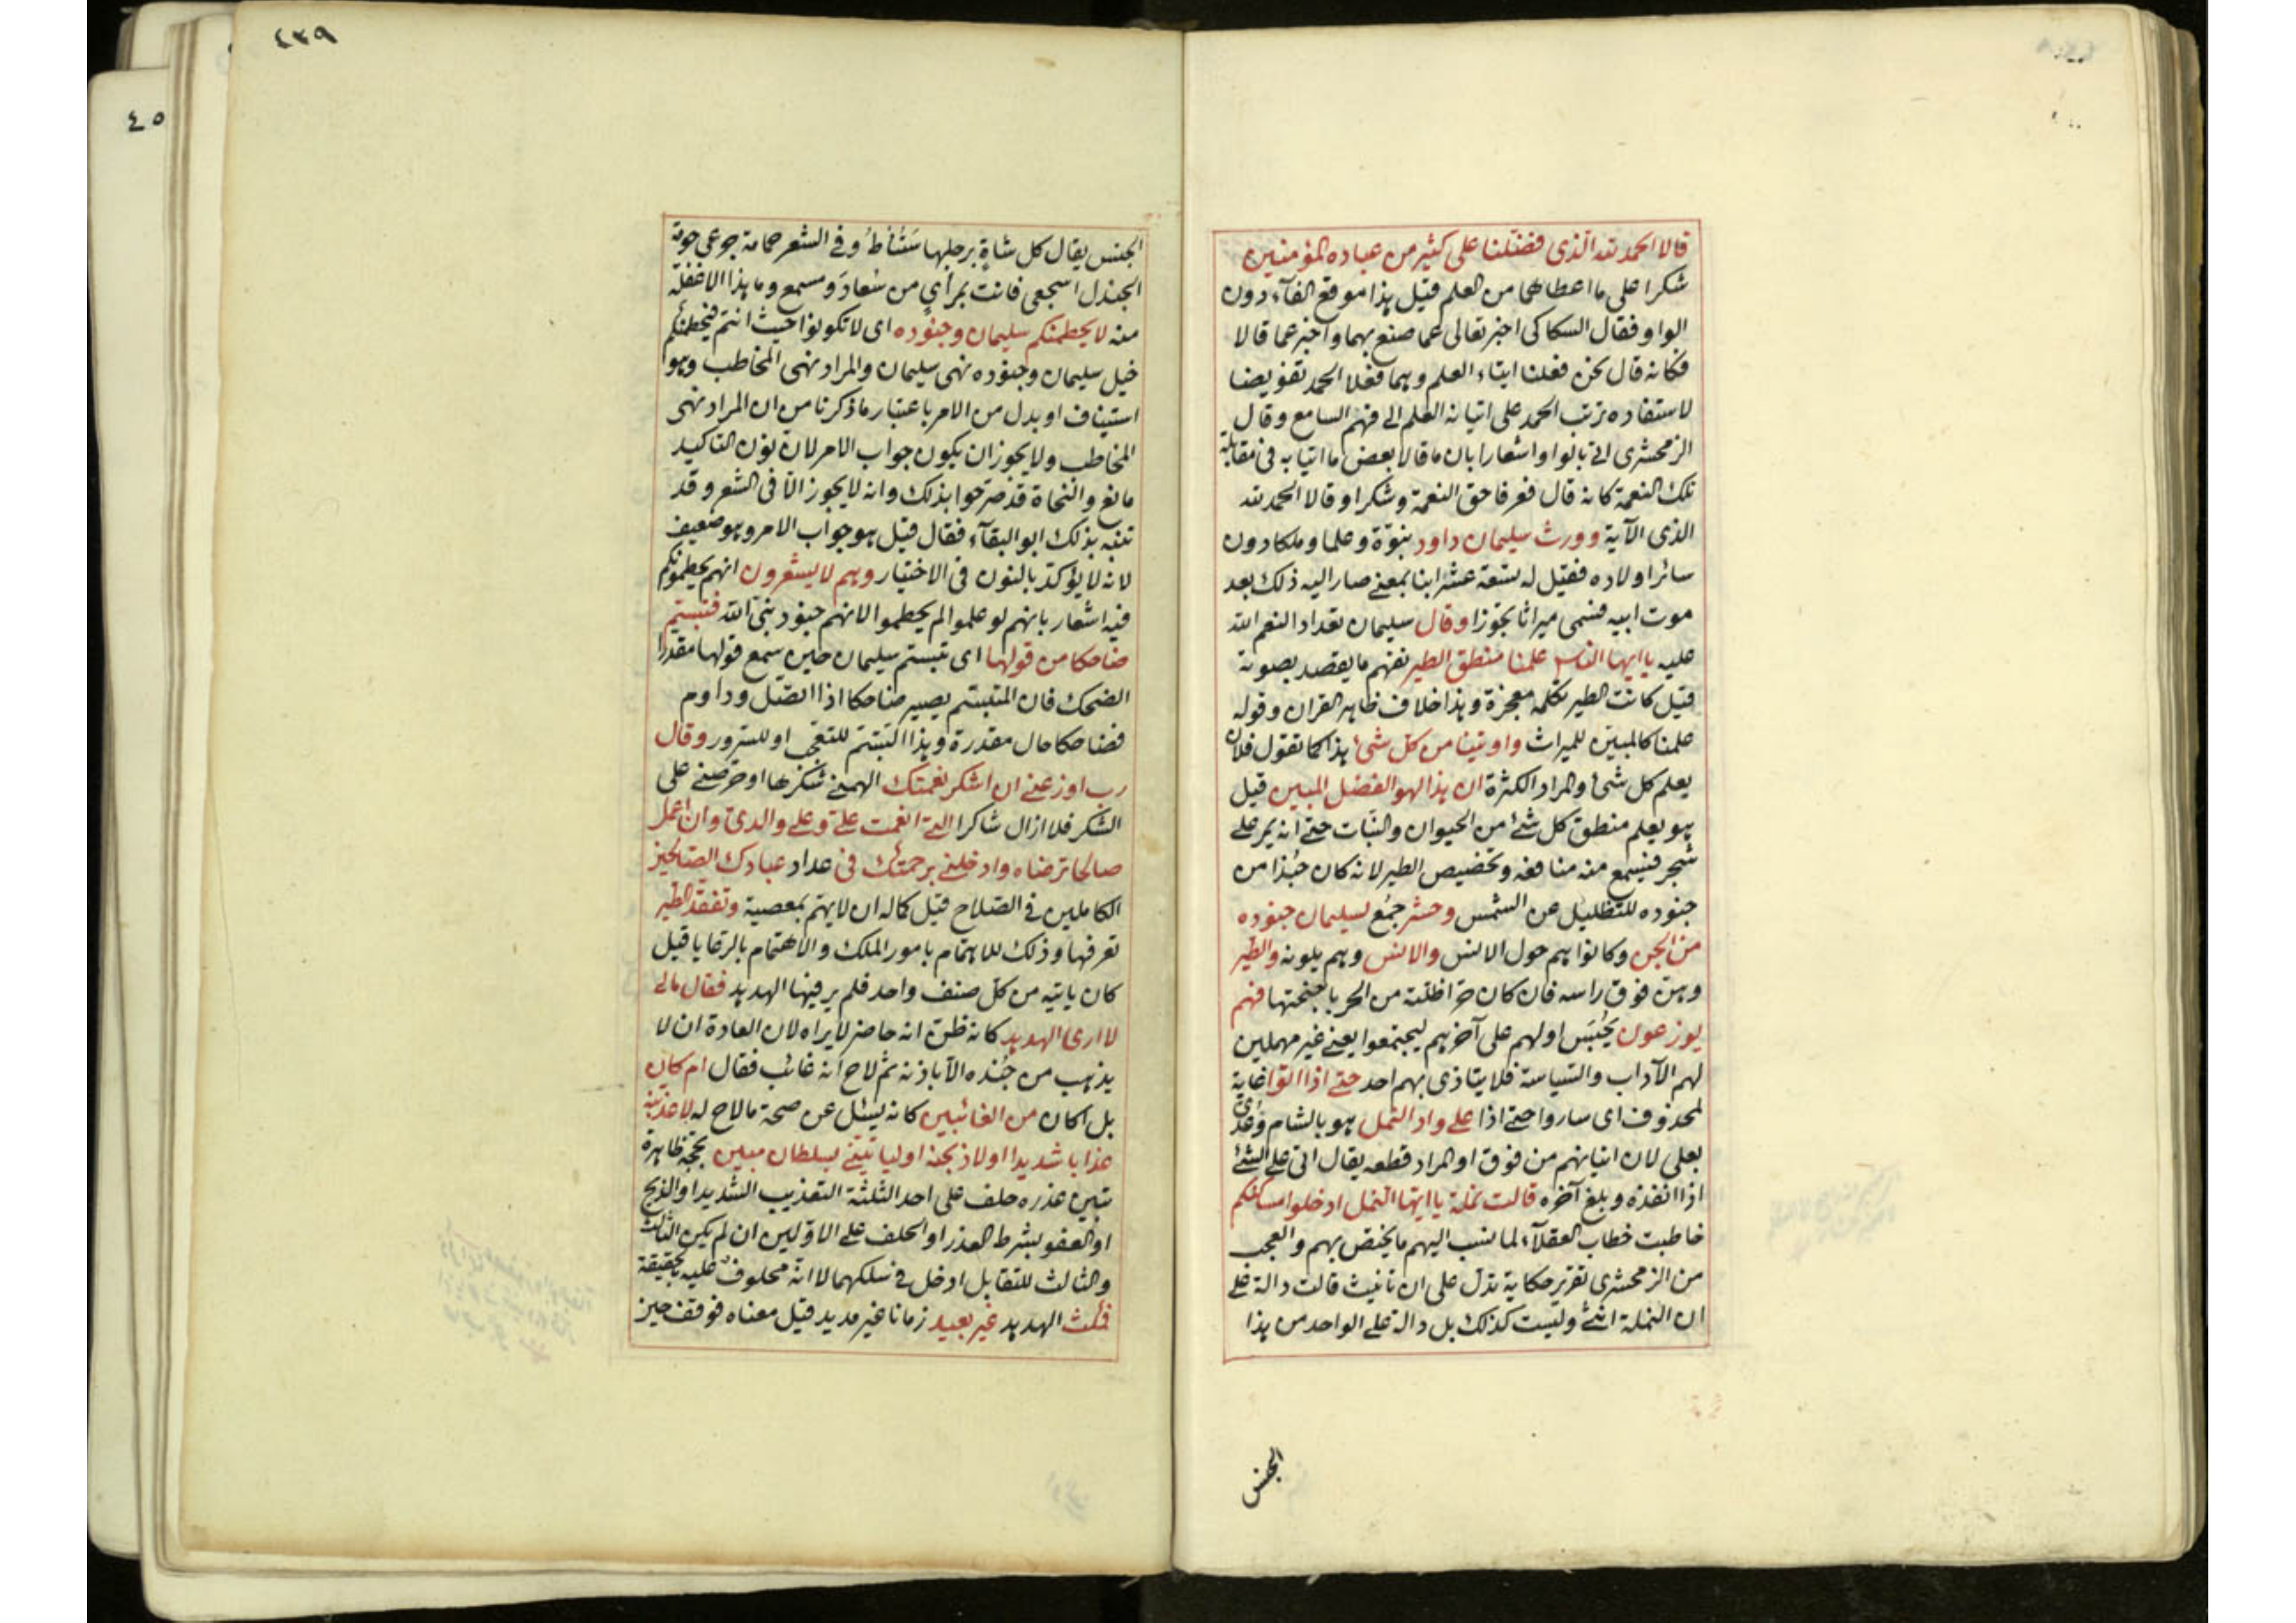 قالا الحمد لله الذى فضلنا على كثير من عباده المؤمنين
شكرا على ما اعطاهما من العلم قيل هذا موقع الفآء دون
الواو فقال السكاكى اخبر تعالى عما صنع بهما واخبر عما قالا
فكانه قال نحن فعلنا ايتاء العلم وهما فعلا الحمد تفويضا
لاستفاده ترتب الحمد على اتيانه العلم الى فهم السامع وقال
الزمخشرى اتى بالواو اشعارا بان ما قالا بعض ما اتيا به فى مقابلة
تلك النعمة كانه قال فعرفا حق النعمة وشكرا وقالا الحمد لله
الذى الآية وورث سليمان داود بنوة وعلما وملكا دون
سائر اولاده فقيل له تسعة عشر ابنا بمعنى صار اليه ذلك بعد
موت ابيه فسمى ميراثا تجوزا وقال سليمان تعداد النعم الله
عليه يا ايها الناس علمنا منطق الطير نفهم ما يقصد بصوته
قيل كانت الطير تكلمه معجزة وهذا خلاف ظاهر القران وقوله
علمنا كالمبين للميراث واوتينا من كل شئ هذا كما تقول فلان
يعلم كل شئ والمراد الكثرة ان هذا لهو الفضل المبين قيل
هو يعلم منطق كل شئ من الحيوان والنبات حتى انه يمر على
شجر فيسمع منه منافعه وتخصيص الطير لانه كان جُندا من
جنوده للتظليل عن الشمس وحشر جمع لسليمان جنوده
من الجن وكانوا هم حول الانس والانس وهم يلونه والطير
وهن فوق راسه فان كان حرّ اظلته من الحر باجنحتها فهم
يوزعون يحبس اولهم على آخرهم ليجتمعوا يعنى غير مهملين
لهم الآداب والسياسة فلا يتاذى بهم احد حتى اذا اتوا غاية
لمحذوف اى ساروا حتى اذا على واد النمل هو بالشام وعدى
بعلى لان اتيانهم من فوق او المراد قطعه يقال اتى على الشئ
اذا انفذه وبلغ آخره قالت نملة يا ايها النمل ادخلوا مساكنكم
خاطبت خطاب العقلآء لما نسب اليهم ما يختص بهم والعجب
من الزمخشرى تقرير حكاية تدل على ان تانيث قالت دالة على
ان النملة انثى وليست كذلك بل دالة على الواحد من هذا
الجنس
٤٣٩
٤٥
الجنس يقال كل شاةٍ برجلها ستناط وفى الشعر حمامة جرعى حومة
الجندل اسجعى فانت بمرأىٍ من سُعادَ ومسمع وما هذا الا غفلة
منه لا يحطمنكم سليمان وجنوده اى لا تكونوا حيث انتم فيحطمنكم
خيل سليمان وجنوده نهى سليمان والمراد نهى المخاطب وهو
استيناف او بدل من الامر باعتبار ما ذكرنا من ان المراد نهى
المخاطب ولا يجوز ان يكون جواب الامر لان نون التاكيد
مانع والنحاة قد صرحوا بذلك وانه لا يجوز الا فى الشعر وقد
تنبه بذلك ابو البقآء فقال قيل هو جواب الامر وهو ضعيف
لانه لا يؤكد بالنون فى الاختيار وهم لا يشعرون انهم يحطمونكم
فيه اشعار بانهم لو علموا لم يحطموا لانهم جنود نبى الله فتبسم
ضاحكا من قولها اى تبسم سليمان حين سمع قولها مقدرا
الضحك فان المتبسم يصير ضاحكا اذا اتصل وداوم
فضاحكا حال مقدرة وهذا التبسم للتعجب او للسرور وقال
رب اوزعنى ان اشكر نعمتك الهمنى شكرها او حرصنى على
الشكر فلا ازال شاكرا التى انعمت على وعلى والدى وان اعمل
صالحا ترضاه وادخلنى برحمتك فى عداد عبادك الصالحين
الكاملين فى الصلاح قيل كماله ان لا يهم بمعصية وتفقد الطير
تعرفها وذلك للاهتمام بامور الملك والاهتمام بالرعايا قيل
كان ياتيه من كل صنف واحد فلم ير فيها الهدهد فقال مالى
لا ارى الهدهد كانه ظن انه حاضر لا يراه لان العادة ان لا
يذهب من جُنده الا باذنه ثم لاح انه غائب فقال ام كان
بل اكان من الغائبين كانه يسئل عن صحة ما لاح له لاعذبنه
عذابا شديدا او لاذبحنه او لياتينى بسلطان مبين بحجة ظاهرة
تبين عذره حلف على احد الثلثة التعذيب الشديد او الذبح
او العفو بشرط العذر او الحلف على الاولين ان لم يكن الثالث
والثالث للتقابل ادخل فى سلكهما لا انه محلوف عليه بالحقيقة
فمكث الهدهد غير بعيد زمانا غير مديد قيل معناه فوقف حين